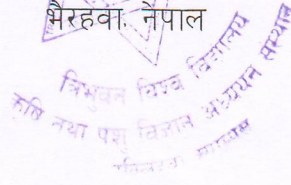 भैरहवा, नेपाल
त्रिभुवन विश्व विद्यालय
कृषि तथा पशु विज्ञान अध्ययन संस्थान